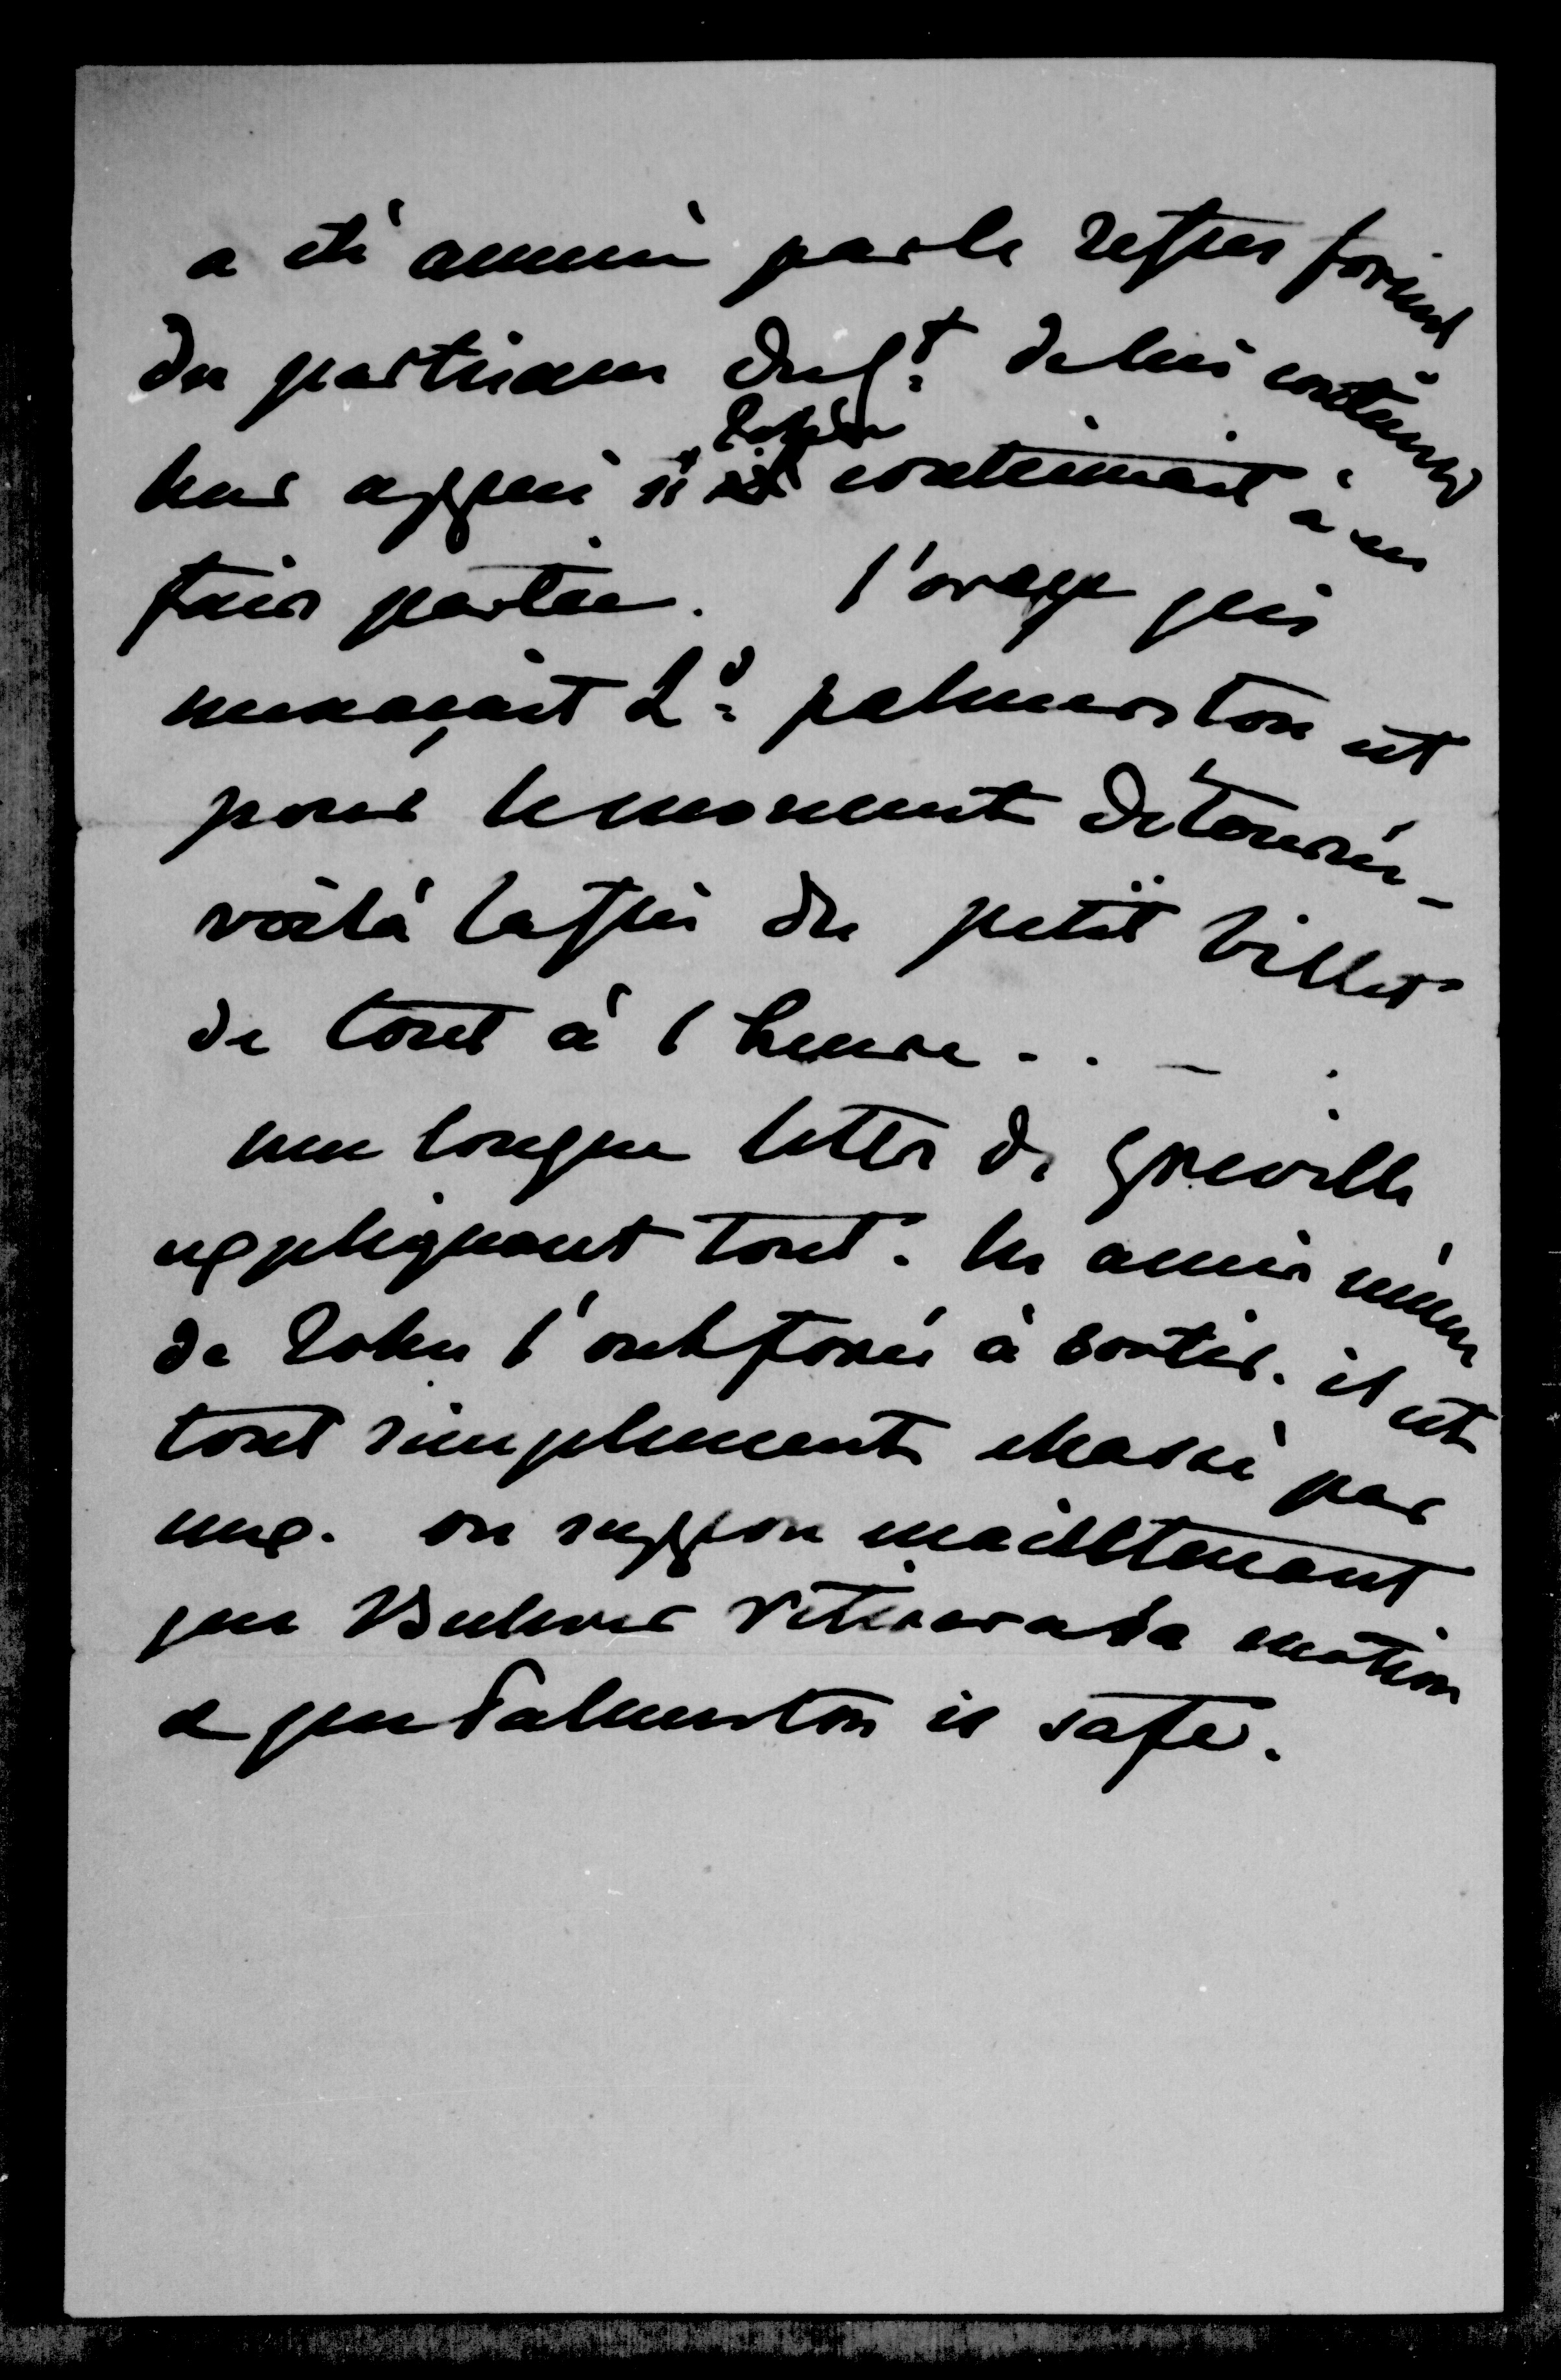 a été amené par le refus formel
des partisans du g.t de lui continuer
leur appui si John continuait à en
faire partie. l'orage qui
menaçait Ld palmerston est
pour le moment détourné -
voilà la fin du petit billet
de tout à l'heure . . -
une longue lettre de greville
expliquant tout. les amis même
de John l'ont forcé à sortir. il est
tout simplement chassé par
eux. on suppose maintenant
que Bulwer retirera sa motion
& que Palmerston is safe.